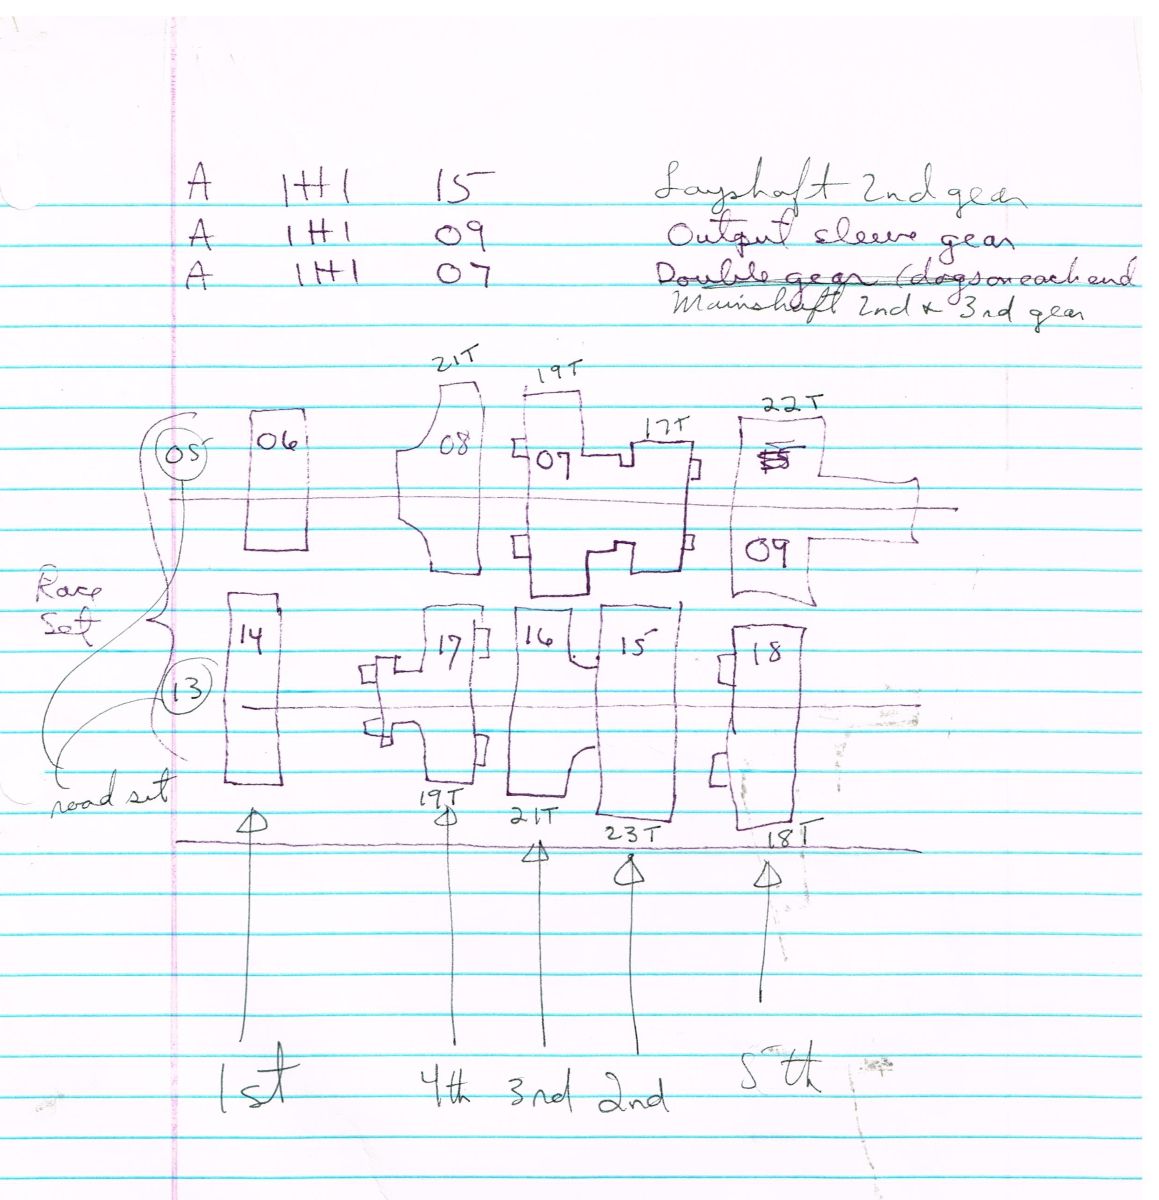 A 1H1 15 Layshaft 2nd gear
A 1H1 09 Output sleeve gear
A 1H1 07 Double gear (dogs on each end
Mainshaft 2nd & 3rd gear
21T 19T 17T 22T
05 06 08 07
09
Race
Set
14 17 16 15 18
13
road set
19T 21T 23T 18T
1st 4th 3rd 2nd 5th